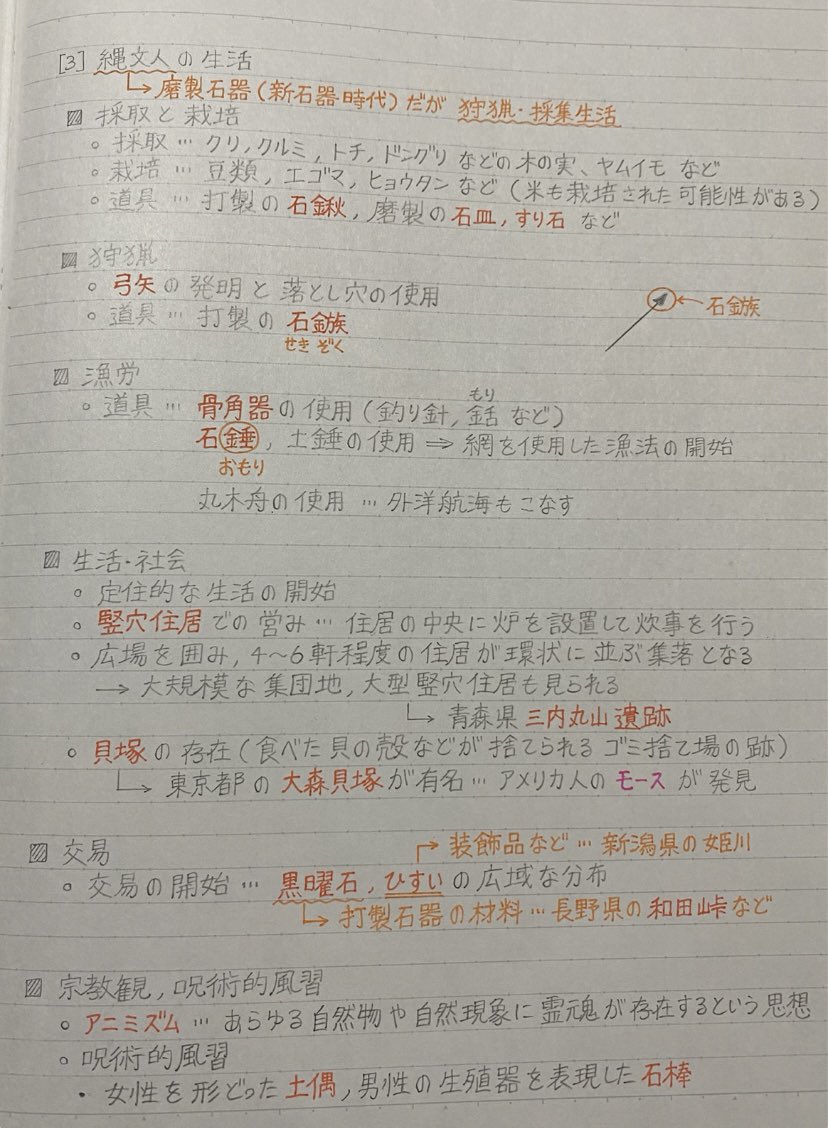 [3] 縄文人の生活
↳ 磨製石器(新石器時代)だが 狩猟・採集生活
▨ 採取と栽培
○ 採取 … クリ, クルミ, トチ, ドングリ などの木の実、ヤムイモ など
○ 栽培 … 豆類, エゴマ, ヒョウタン など (米も栽培された可能性がある)
○ 道具 … 打製の 石鍬, 磨製の 石皿, すり石 など
▨ 狩猟
○ 弓矢 の 発明と 落とし穴の使用
← 石鏃
○ 道具 … 打製の 石鏃
せき ぞく
▨ 漁労
もり
○ 道具 … 骨角器 の 使用 (釣り針, 銛 など)
石錘, 土錘の使用 ⇒ 網を使用した漁法の開始
おもり
丸木舟の使用 … 外洋航海もこなす
▨ 生活・社会
○ 定住的な生活の開始
○ 竪穴住居 での 営み … 住居の中央に炉を設置して炊事を行う
○ 広場を囲み, 4〜6軒程度の住居が環状に並ぶ集落となる
→ 大規模な集団地, 大型竪穴住居も見られる
↳ 青森県 三内丸山遺跡
○ 貝塚 の 存在 (食べた貝の殻などが捨てられるゴミ捨て場の跡)
↳ 東京都の 大森貝塚 が有名 … アメリカ人の モース が発見
↱ 装飾品など … 新潟県の姫川
▨ 交易
○ 交易の開始 … 黒曜石, ひすい の広域な分布
↳ 打製石器の材料 … 長野県の和田峠など
▨ 宗教観, 呪術的風習
○ アニミズム … あらゆる自然物や自然現象に霊魂が存在するという思想
○ 呪術的風習
・ 女性を形どった 土偶, 男性の生殖器を表現した 石棒